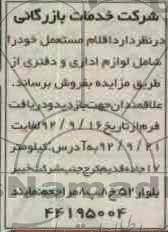 شرکت خدمات بازرگانی
درنظردارد اقلام مستعمل خودرا
شامل لوازم اداری و دفتری از
طریق مزایده بفروش برساند.
علاقمندان جهت بازدید و دریافت
فرم از تاریخ ۹۲/۹/۱۶ لغایت
۹۲/۹/۲۱ به آدرس. کیلومتر
جاده قدیم کرج جنب شرکت خیبر
بلوار ۵۲ مراجعه نمایند
۴۴۱۹۵۰۰۴